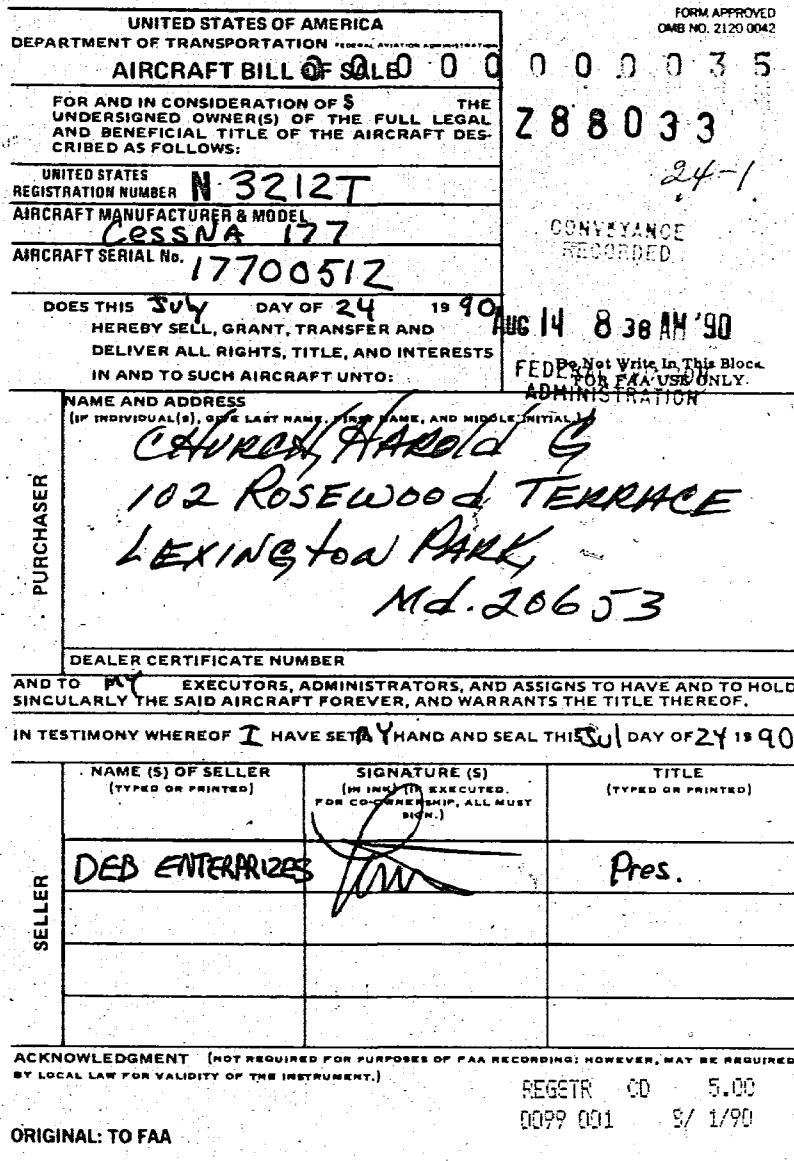 FORM APPROVED
OMB NO. 2120 0042
UNITED STATES OF AMERICA
DEPARTMENT OF TRANSPORTATION FEDERAL AVIATION ADMINISTRATION
AIRCRAFT BILL OF SALE
0 0 0 0 0 0 0 0 0 0 3 5
FOR AND IN CONSIDERATION OF $ THE
UNDERSIGNED OWNER(S) OF THE FULL LEGAL
AND BENEFICIAL TITLE OF THE AIRCRAFT DES-
CRIBED AS FOLLOWS:
Z88033
24-1
UNITED STATES
REGISTRATION NUMBER N 3212T
AIRCRAFT MANUFACTURER & MODEL
CESSNA 177
AIRCRAFT SERIAL No.
17700512
CONVEYANCE
RECORDED
DOES THIS July DAY OF 24 19 90
HEREBY SELL, GRANT, TRANSFER AND
DELIVER ALL RIGHTS, TITLE, AND INTERESTS
IN AND TO SUCH AIRCRAFT UNTO:
AUG 14 8 38 AM '90
FEDERAL
ADMINISTRATION
Do Not Write In This Block
FOR FAA USE ONLY.
PURCHASER
NAME AND ADDRESS
(IF INDIVIDUAL(S), GIVE LAST NAME, FIRST NAME, AND MIDDLE INITIAL.)
CHURCH, HAROLd G
102 ROSEWOOd TERRACE
LEXINGtoN PARK,
Md. 20653
DEALER CERTIFICATE NUMBER
AND TO MY EXECUTORS, ADMINISTRATORS, AND ASSIGNS TO HAVE AND TO HOLD
SINGULARLY THE SAID AIRCRAFT FOREVER, AND WARRANTS THE TITLE THEREOF.
IN TESTIMONY WHEREOF I HAVE SET MY HAND AND SEAL THIS Jul DAY OF 24 19 90
SELLER
NAME (S) OF SELLER
(TYPED OR PRINTED)
SIGNATURE (S)
(IN INK) (IF EXECUTED
FOR CO-OWNERSHIP, ALL MUST
SIGN.)
TITLE
(TYPED OR PRINTED)
DEB ENTERPRIZES
Pres.
ACKNOWLEDGMENT (NOT REQUIRED FOR PURPOSES OF FAA RECORDING; HOWEVER, MAY BE REQUIRED
BY LOCAL LAW FOR VALIDITY OF THE INSTRUMENT.)
REGSTR CD 5.00
0099 001 8/ 1/90
ORIGINAL: TO FAA